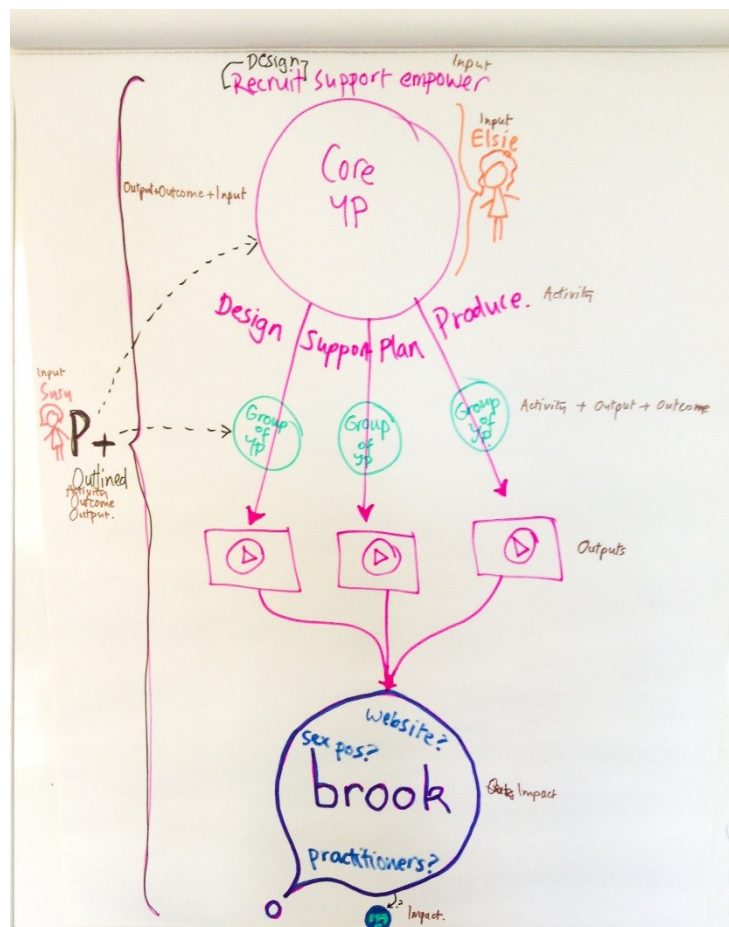 Design
Recruit support empower
Input
Input
Elsie
Core
YP
Output+Outcome+Input
Design
Support Plan
Produce.
Activity
Input
Susu
P+
Outlined
Activity
Outcome
Output.
Group
of
YP
Group
of
YP
Group
of
YP
Activity + Output + Outcome
Outputs
website?
sex pos?
brook
practitioners?
Impact
?
Impact.